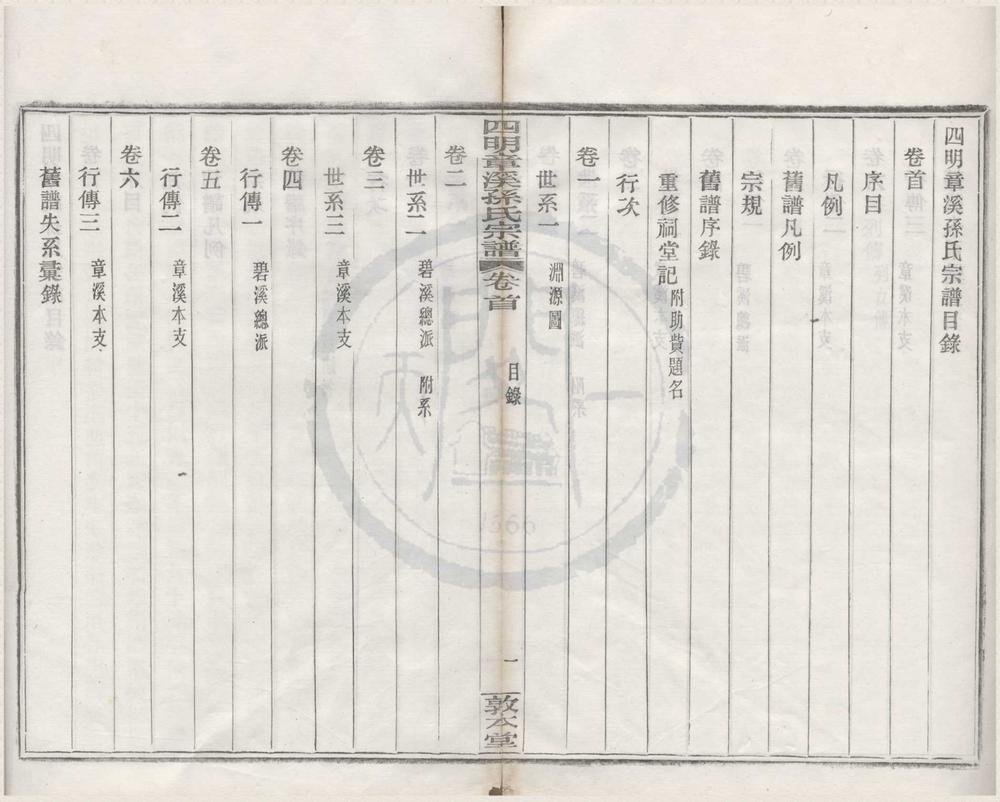 四明章溪孫氏宗譜目錄
卷首
序目
凡例
舊譜凡例
宗規
舊譜序錄
重修祠堂記 附助貲題名
行次
卷一
世系一 淵源圖
四明章溪孫氏宗譜 卷首 目錄 一 敦本堂
卷二
世系二 碧溪總派 附系
卷三
世系三 章溪本支
卷四
行傳一 碧溪總派
卷五
行傳二 章溪本支
卷六
行傳三 章溪本支
舊譜失系彙錄
1566